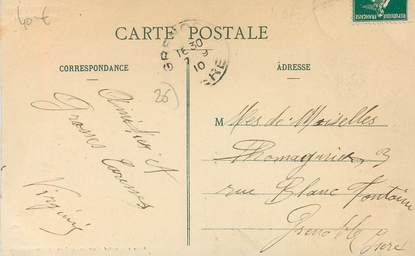 40€
CARTE POSTALE
16 30
7 9
10
CORRESPONDANCE
ADRESSE
25
Amitiés et
Grosses Caresses
Virginie
M Mes de Moiselles
rue Blanc Fontaine
Grenoble Isère